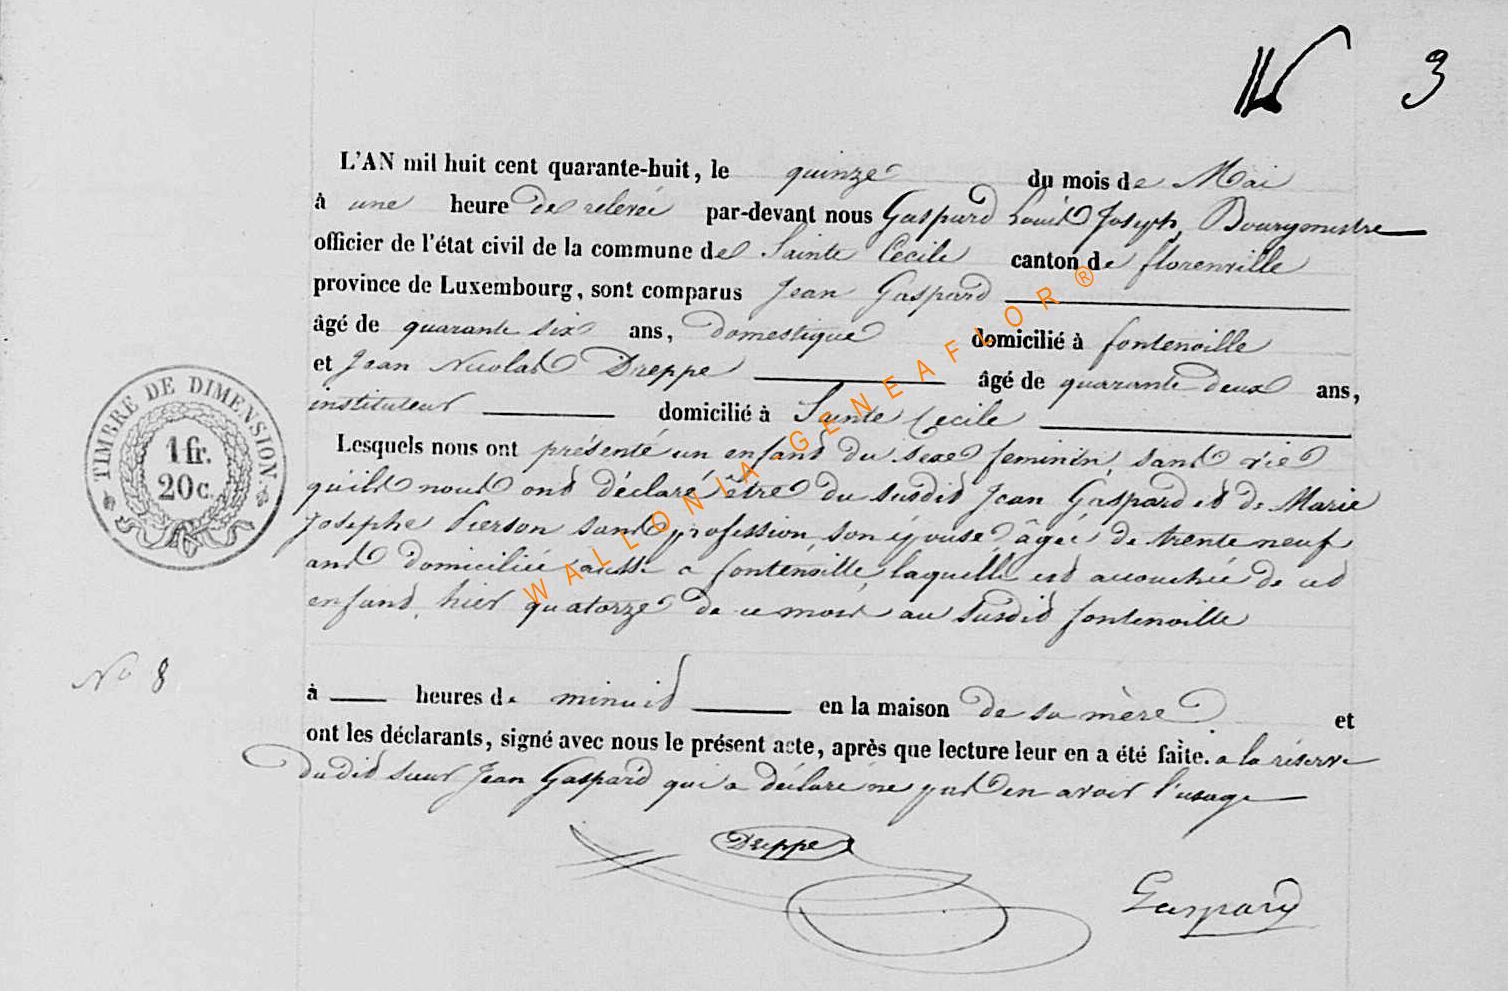 3
L'AN mil huit cent quarante-huit, le quinze du mois de Mai
à une heure de relevée par-devant nous Gaspard Louis Joseph, Bourgmestre
officier de l'état civil de la commune de Sainte Cécile canton de florenville
province de Luxembourg, sont comparus Jean Gaspard
âgé de quarante six ans, domestique domicilié à fontenoille
et Jean Nicolas Dreppe âgé de quarante deux ans,
instituteur domicilié à Sainte Cecile
Lesquels nous ont présenté un enfant du sexe feminin, sans vie
qu'ils nous ont déclaré être du susdit Jean Gaspard et de Marie
Josephe Pierson sans profession, son épouse âgée de trente neuf
ans domiciliée aussi a fontenoille, laquelle est accouchée de cet
enfant, hier quatorze de ce mois au susdit fontenoille
No 8
à heures de minuit en la maison de sa mère et
ont les déclarants, signé avec nous le présent acte, après que lecture leur en a été faite. a la réserve
dudit sieur Jean Gaspard qui a déclaré ne pas en avoir l'usage
Dreppe
Gaspard
TIMBRE DE DIMENSION.
1 fr.
20 c.
WALLONIA GENEAFLOR ®